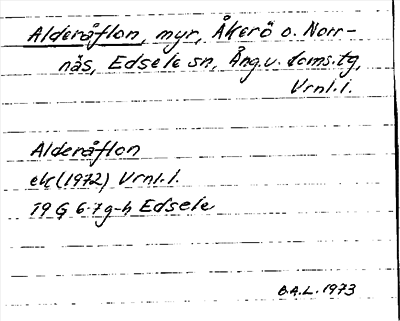 Alderåflon, myr, Åkerö o. Norr-
näs, Edsele sn, Ång.v. doms.tg,
Vrnl.l.
Alderåflon
ek (1972) Vrnl.l.
19 G 6-7 g-h Edsele
B.A.L. 1973